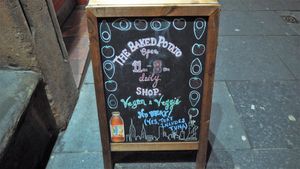 THE BAKED POTATO
Open
11am - 8pm
daily
SHOP.
Vegan & Veggie
No Meat!
(YES, THAT
INCLUDES
TUNA)